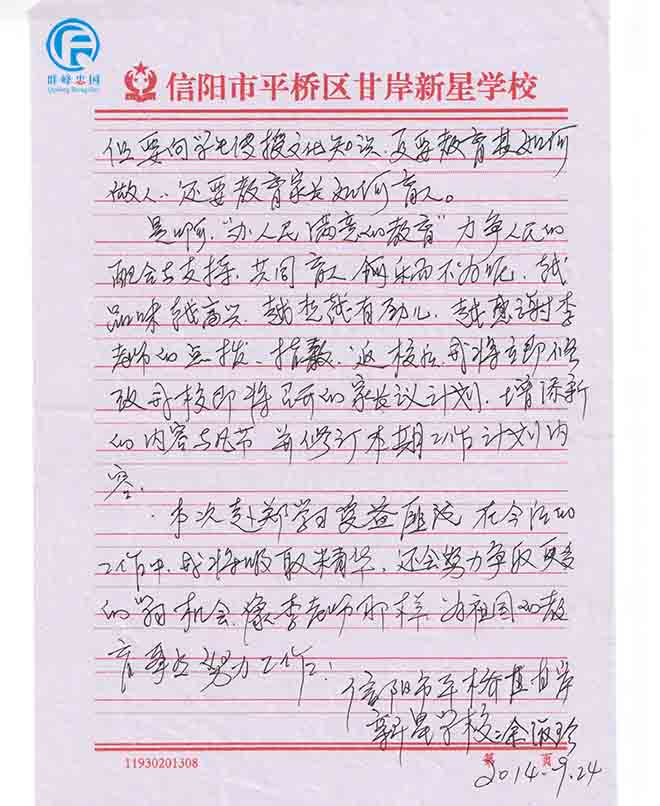 群峰忠园
信阳市平桥区甘岸新星学校
但要向学生传授文化知识、更要教育其如何
做人、还要教育家长如何育人。
是啊，“办人民满意的教育”力争人民的
配合与支持，共同育人，何乐而不为呢，越
品味越高兴，越想越有劲儿，越感谢李
老师的点拨、指教，返校后，我将立即修
改我校即将召开的家长议计划，增添新
的内容与风节，并修订本期工作计划内
容。
本次赴郑学习受益匪浅，在今后的
工作中，我将吸取精华，还会努力争取更多
的学习机会，像李老师那样，为祖国的教
育事业努力工作！
信阳市平桥区甘岸
新星学校：余淑玲
11930201308
第 页
2014-9.24